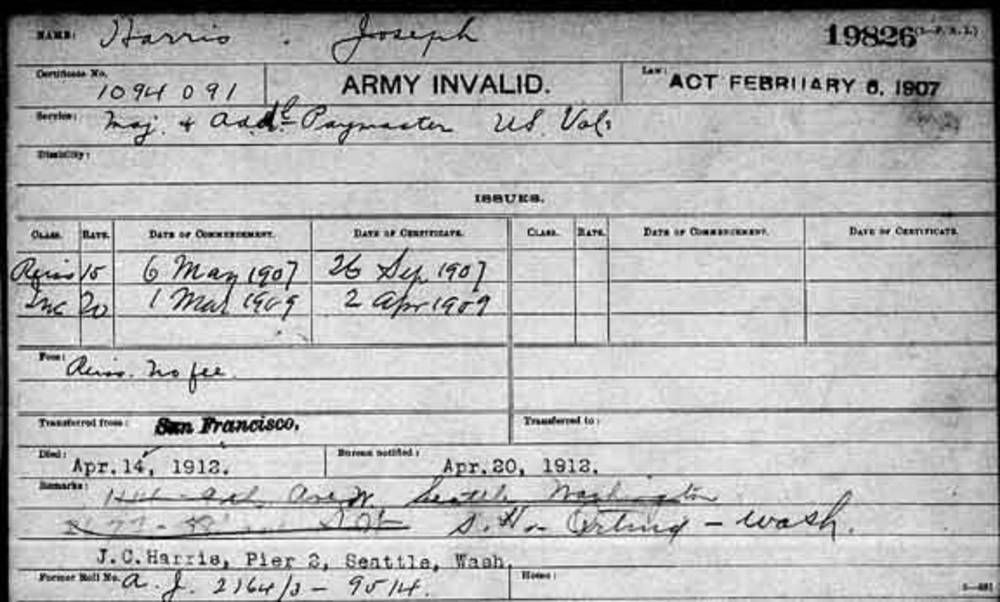 NAME: Harris . Joseph 19826 (3-P.A.L.)
Certificate No. 1094 091 ARMY INVALID. Law: ACT FEBRUARY 6, 1907
Service: Maj. & Addl Paymaster US. Vols
Disability:
ISSUES.
CLASS. RATE. DATE OF COMMENCEMENT. DATE OF CERTIFICATE. CLASS. RATE. DATE OF COMMENCEMENT. DATE OF CERTIFICATE.
Reiss 15 6 May 1907 26 Sep 1907
Inc 20 1 Mar 1909 2 Apr 1909
Fees: Reiss. No fee.
Transferred from: San Francisco. Transferred to:
Died: Apr. 14, 1912. Bureau notified: Apr. 20, 1912.
Remarks: Ave W Seattle Washington
S. H. Orting - Wash.
J.C.Harris, Pier 2, Seattle, Wash.
Former Roll No. A. J. 2164/3 - 9514. Home: